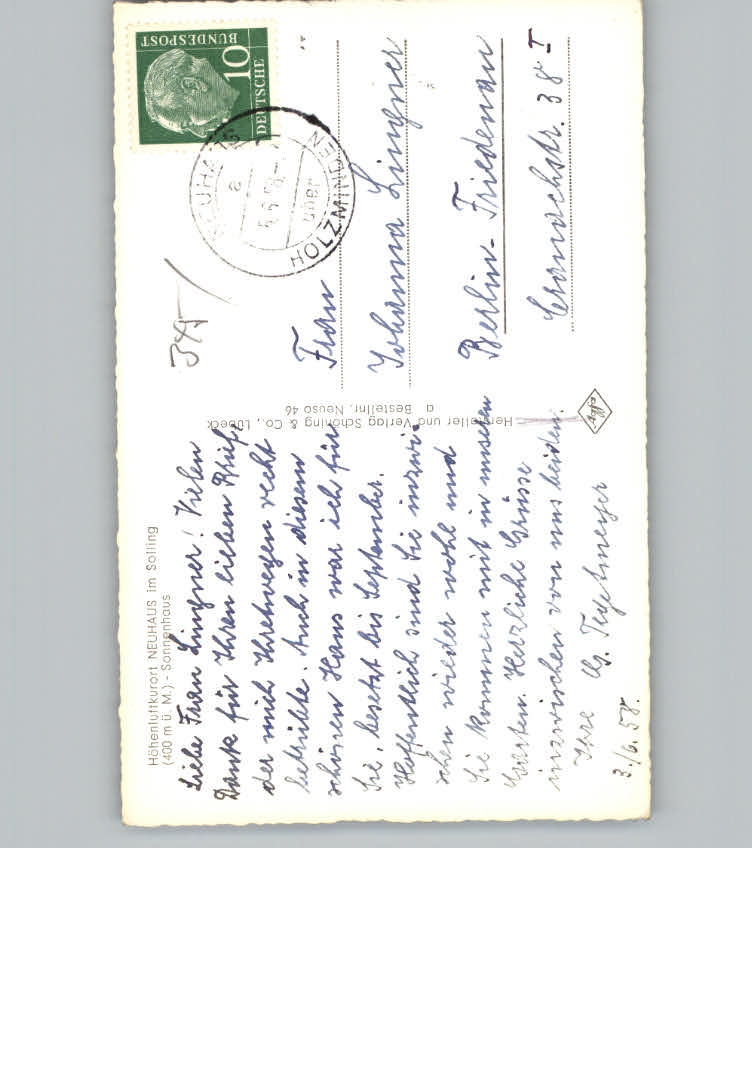 Höhenluftkurort NEUHAUS im Solling
(400 m ü. M.) - Sonnenhaus
Liebe Frau Lingner! Vielen
Dank für Ihren lieben Gruß,
der mich Ihretwegen recht
betrübte. Auch in diesem
schönen Haus war ich für
Sie, besetzt bis September.
Hoffentlich sind Sie inzwi-
schen wieder wohl und
Sie kommen mit in unseren
Garten. Herzliche Grüsse
inzwischen von uns beiden.
Ihre
3./6.58.
Hersteller und Verlag Schöning & Co., Lübeck
a Bestellnr. Neuso 46
Agfa
345
DEUTSCHE
BUNDESPOST
10
NEUHAUS
a
5.6.58
über
HOLZMINDEN
Frau
Johanna Lingner
Berlin-Friedenau
Cranachstr. 38 I